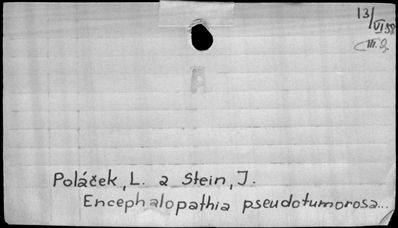 13/VI 58
III. 9
A
Poláček, L. a Stein, J.
Encephalopathia pseudotumorosa...